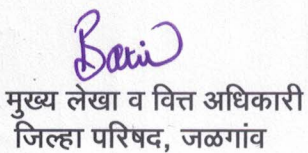 मुख्य लेखा व वित्त अधिकारी
जिल्हा परिषद, जळगांव